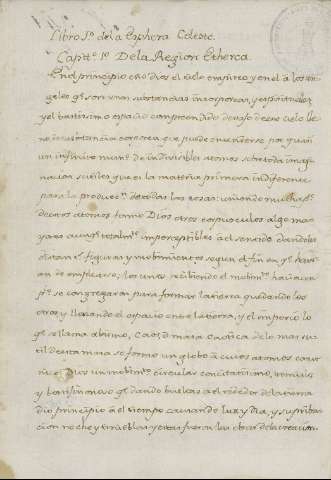 Libro 1º de la Esphera Celeste.
Capitº 1º De la Region Etherea.
En el principio crio Dios el cielo empireo y en el a los an
geles qº son unas substancias incorporeas, y espirituales
y el vastissimo espacio comprendido debaxo de ese cielo lle
no de substancia corporea que puede entenderse por quasi
un infinito num.º de indivisibles atomos sobre toda imagi
nacion sutiles que es la materia primera indiferente
para la producc.ⁿ de todas las cosas: uniendo muchas p.ˢ
de estos atomos formo Dios otros corpusculos algo ma
yores aunq.º totalm.º imperceptibles al sentido dandoles
distintas figuras y movimientos segun el fin en q.º havi
an de emplearse, los unos recibiendo el movim.º hacia un
p.º se congregaran para formar la tierra quedando los
otros y llenando el espacio entre la tierra, y el empireo lo
q.º se llama abismo, Caos, o masa caotica de lo mas su
til de esta masa se formo un globo a cuios atomos comu
nico Dios un movim.º circular concitatissimo, tremulo
y luminoso q.º dando bueltas al rededor de la tierra
dio principio a el tiempo causando luz y dia, y su priba
cion noche y tinieblas y estas fueron las obras de la creacion.